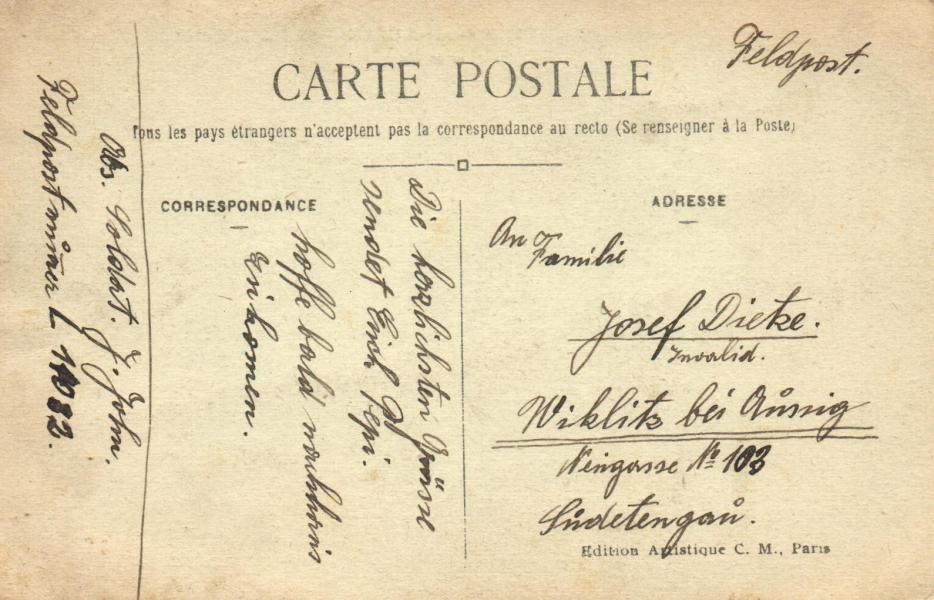 Feldpost.
CARTE POSTALE
Tous les pays étrangers n'acceptent pas la correspondance au recto (Se renseigner à la Poste)
CORRESPONDANCE
ADRESSE
Die herzlichsten Grüsse
sendet Euch Pepi.
hoffe bald nachhaus
zu komen.
Abs. Soldat. J. John.
Feldpostnumer L
An
Familie
Josef Dietze.
Invalid.
Wiklitz bei Aussig
Neugasse № 103
Sudetengau.
Edition Artistique C. M., Paris